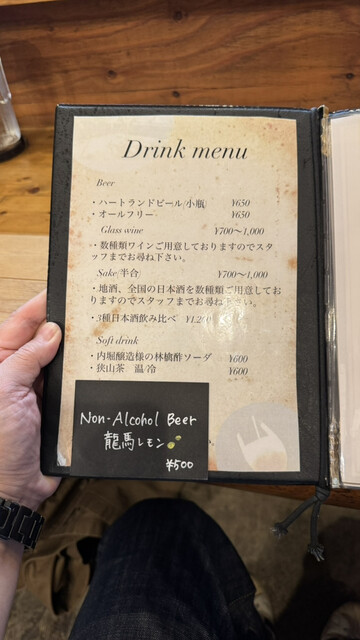 Drink menu
Beer
・ハートランドビール/小瓶 ¥650
・オールフリー ¥650
Glass wine ¥700～1,000
・数種類ワインご用意しておりますのでスタ
ッフまでお尋ね下さい。
Sake/半合 ¥700～1,000
・地酒、全国の日本酒を数種類ご用意してお
りますのでスタッフまでお尋ね下さい。
・3種日本酒飲み比べ
Soft drink
・内堀醸造様の林檎酢ソーダ ¥600
・狭山茶 温/冷 ¥600
Non-Alcohol Beer
龍馬レモン
¥500